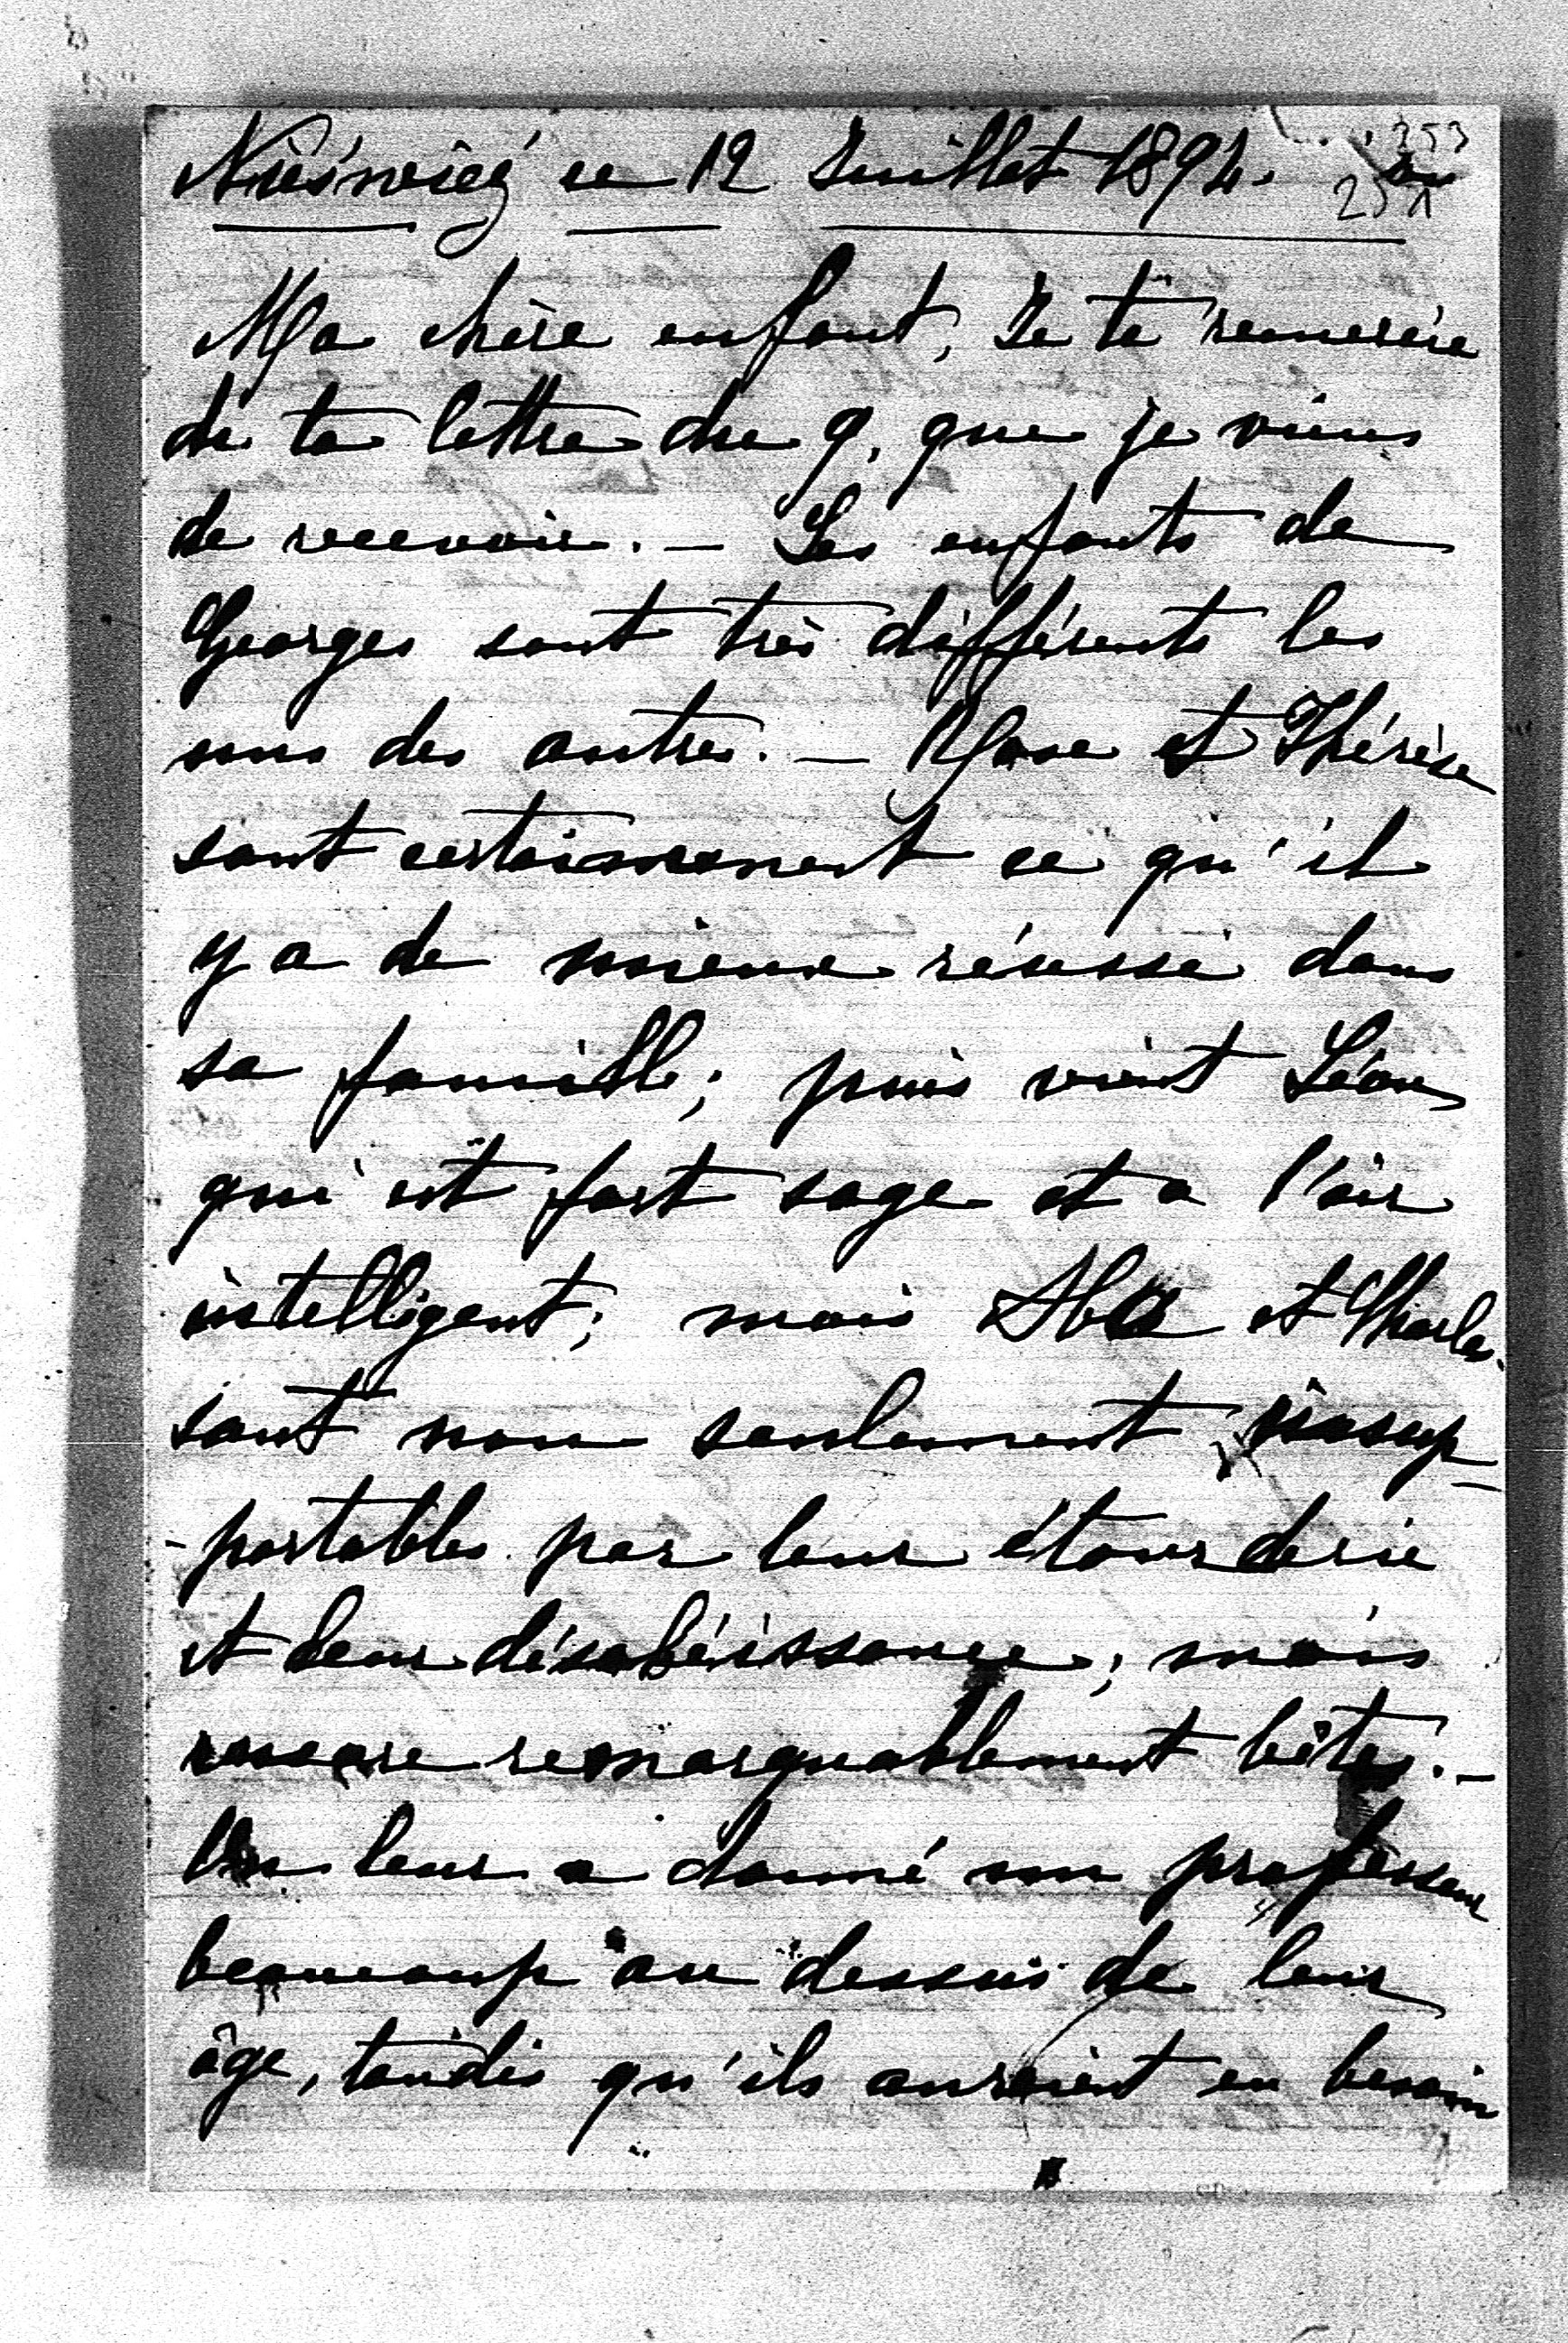 Nieśwież ce 12 Juillet 1894.
353
251
Ma chère enfant, Je te remercie
de ta lettre du 9, que je viens
de recevoir. — Les enfants de
Georges sont très différents les
uns des autres. — Rose et Thérèse
sont certainement ce qu'il
y a de mieux réussi dans
sa famille; puis vient Léon,
qui est fort sage et a l'air
intelligent; mais Aba et Charles
sont non seulement insup-
-portables par leur étourderie
et leur désobéissance; mais
encore remarquablement bêtes. —
On leur a donné un professeur
beaucoup au dessus de leur
âge, tandis qu'ils auraient eu besoin